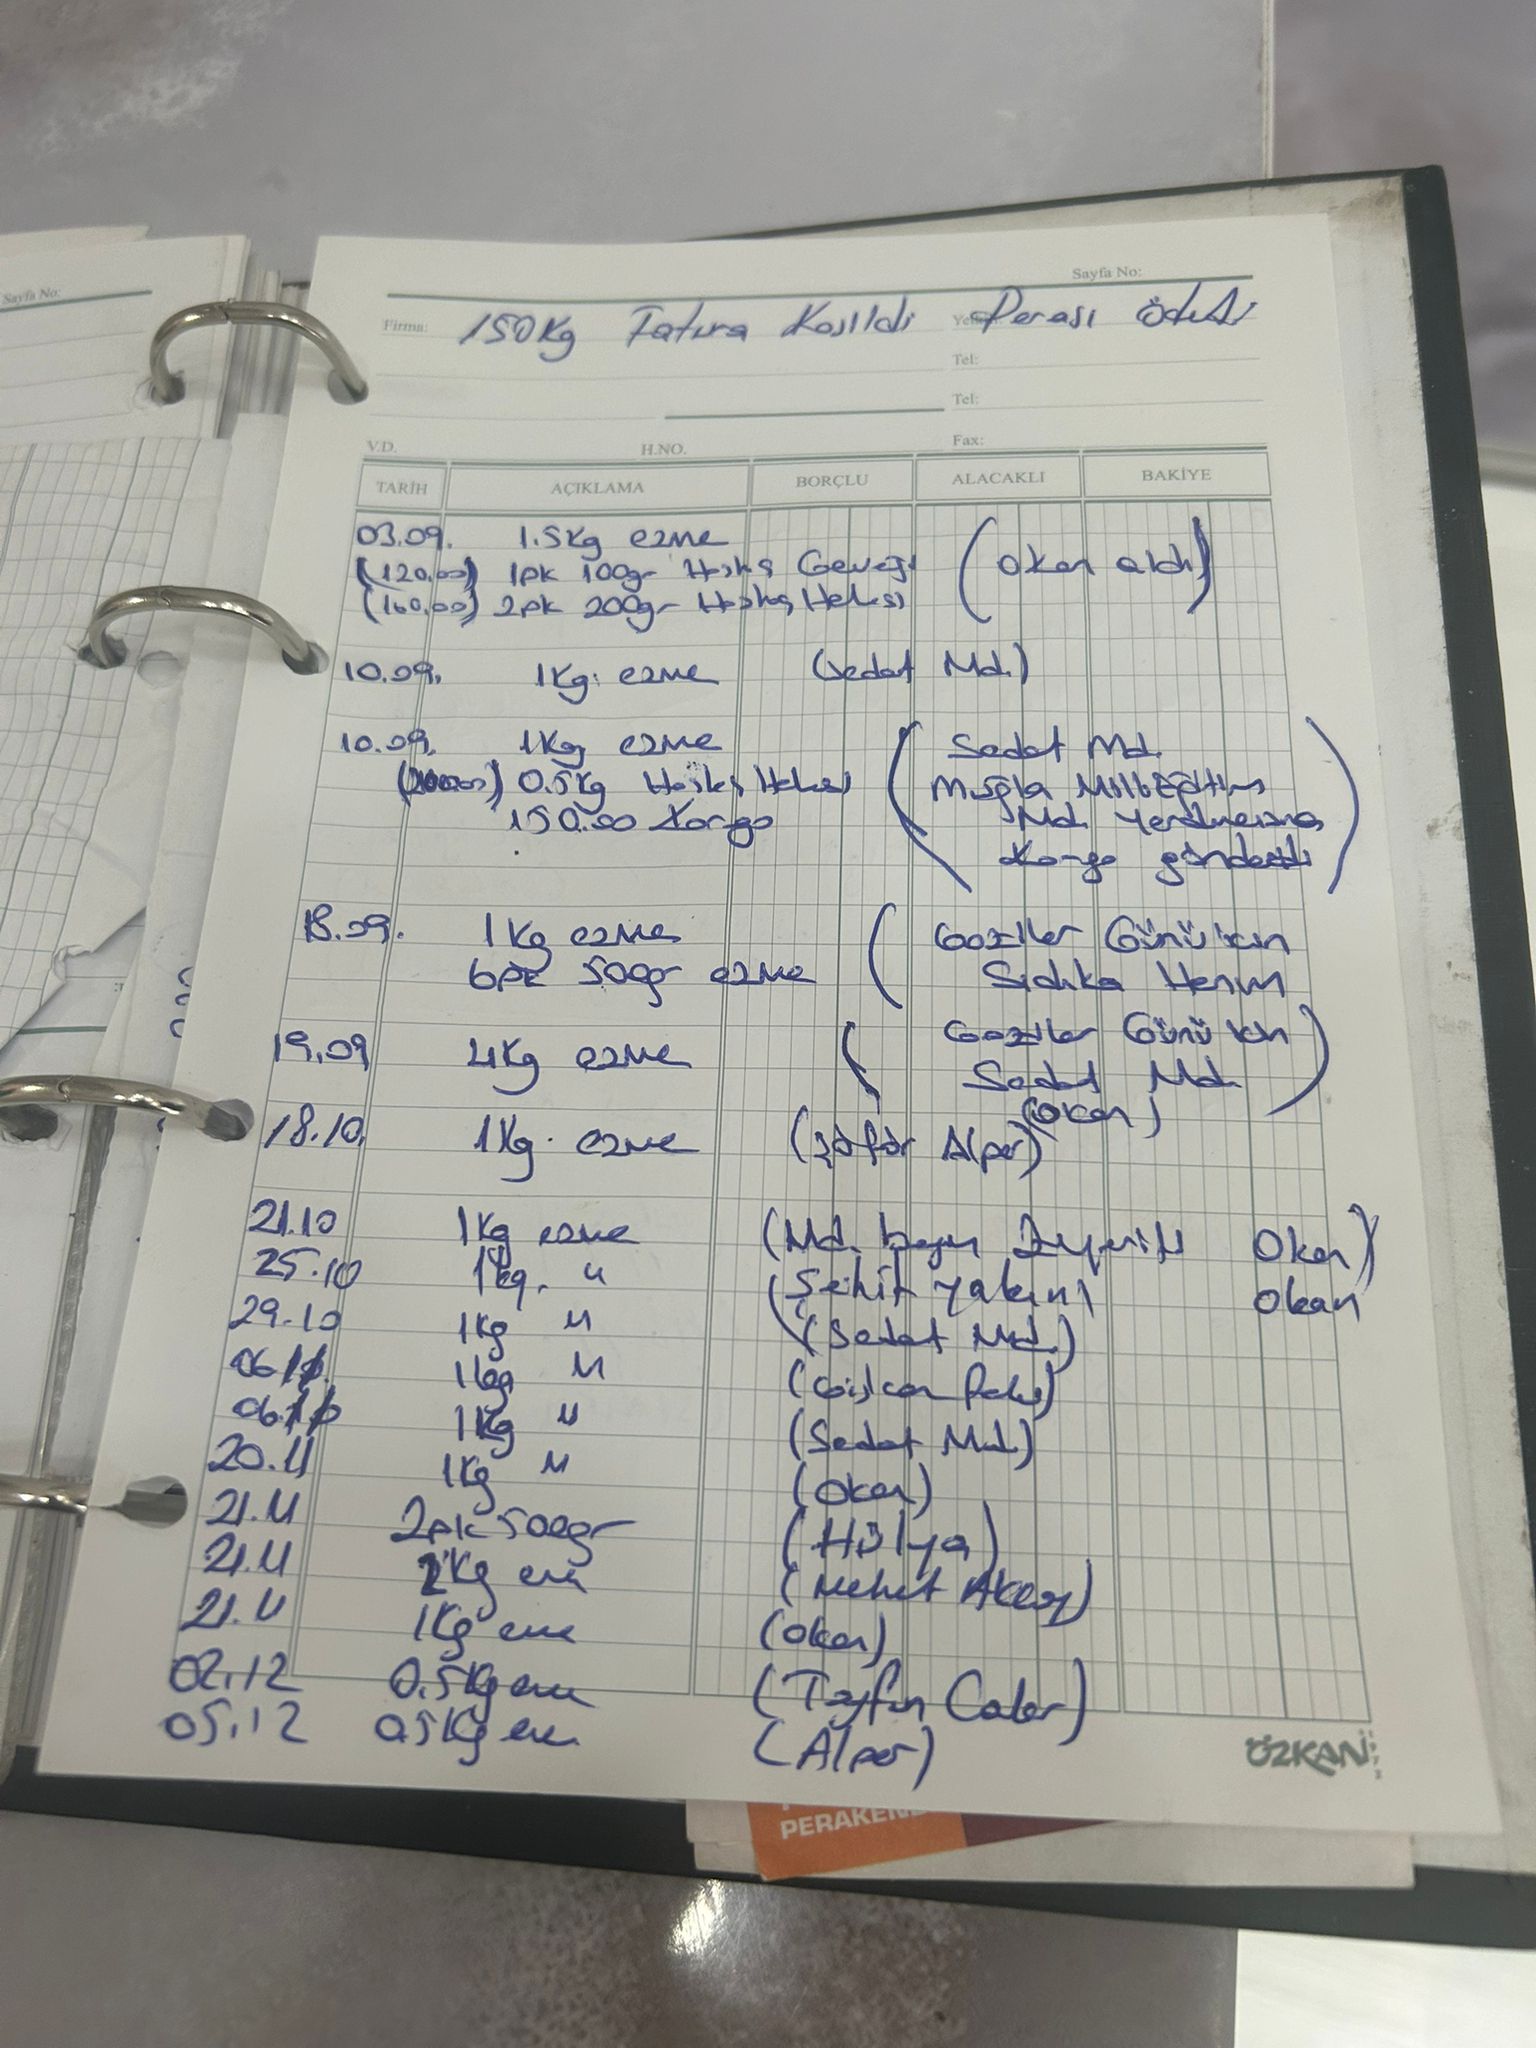 Sayfa No:
Sayfa No:
Firma: 150Kg Fatura Kesildi Parası Ödendi
Tel:
Tel:
V.D. H.NO. Fax:
TARİH AÇIKLAMA BORÇLU ALACAKLI BAKİYE
03.09. 1.5Kg ezme
(120.00) 1pk 100gr Haşhaş Gevreği (Okan aldı)
(160.00) 2pk 200gr Haşhaş Helvası
10.09. 1Kg. ezme (Sedat Md.)
10.09. 1Kg ezme (Sedat Md.
0.5Kg Haşhaş Helvası Muğla Milli Eğitim
150.00 Kargo Md. Yardımcısına
Kargo gönderildi)
18.09. 1Kg ezme (Gaziler Günü için
6pk 500gr ezme Sıdıka Hanım
19.09 4Kg ezme (Gaziler Günü için
Sedat Md.)
(Okan)
18.10. 1Kg. ezme (Şöför Alper)
21.10 1Kg ezme (Md. beyin Okan)
25.10 1kg. " (Şehit yakını Okan
29.10 1Kg " (Sedat Md.)
06.11. 1kg "
06.11 1Kg " (Sedat Md.)
20.11 1Kg " (Okan)
21.11 2pk 500gr (Hülya)
21.11 2Kg ezme (Mehmet Aksoy)
21.11 1Kg ezme (Okan)
02.12 0.5Kg ezme (Tayfun)
05.12 0.5Kg ezme (Alper)
ÖZKAN